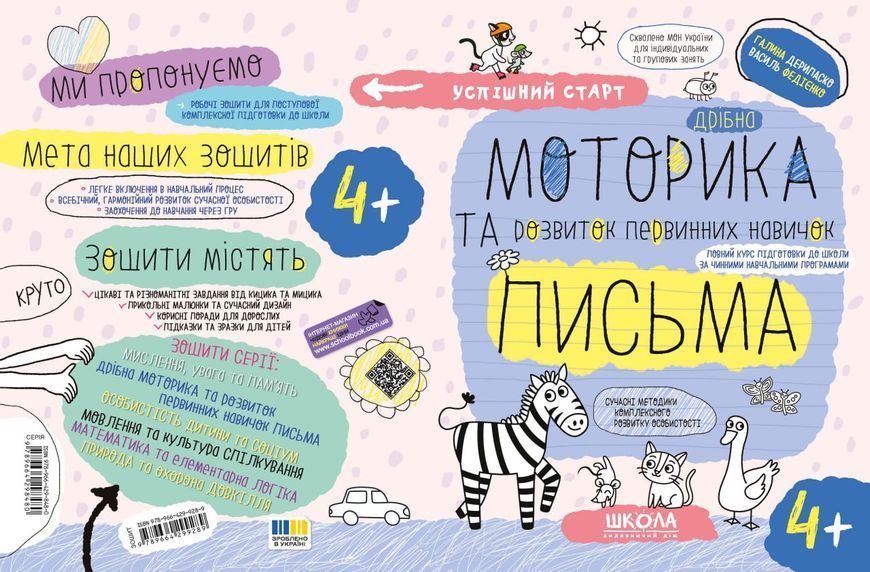 МИ ПРОПОНУЄМО
РОБОЧІ ЗОШИТИ ДЛЯ ПОСТУПОВОЇ
КОМПЛЕКСНОЇ ПІДГОТОВКИ ДО ШКОЛИ
МЕТА НАШИХ ЗОШИТІВ
ЛЕГКЕ ВКЛЮЧЕННЯ В НАВЧАЛЬНИЙ ПРОЦЕС
ВСЕБІЧНИЙ, ГАРМОНІЙНИЙ РОЗВИТОК СУЧАСНОЇ ОСОБИСТОСТІ
ЗАОХОЧЕННЯ ДО НАВЧАННЯ ЧЕРЕЗ ГРУ
4+
ЗОШИТИ МІСТЯТЬ
КРУТО
ЦІКАВІ ТА РІЗНОМАНІТНІ ЗАВДАННЯ ВІД КИЦИКА ТА МИЦИКА
ПРИКОЛЬНІ МАЛЮНКИ ТА СУЧАСНИЙ ДИЗАЙН
КОРИСНІ ПОРАДИ ДЛЯ ДОРОСЛИХ
ПІДКАЗКИ ТА ЗРАЗКИ ДЛЯ ДІТЕЙ
ІНТЕРНЕТ-МАГАЗИН
www.schoolbook.com.ua
ЗОШИТИ СЕРІЇ:
МИСЛЕННЯ, УВАГА ТА ПАМ'ЯТЬ
ДРІБНА МОТОРИКА ТА РОЗВИТОК
ПЕРВИННИХ НАВИЧОК ПИСЬМА
ОСОБИСТІСТЬ ДИТИНИ ТА СОЦІУМ
МОВЛЕННЯ ТА КУЛЬТУРА СПІЛКУВАННЯ
МАТЕМАТИКА ТА ЕЛЕМЕНТАРНА ЛОГІКА
ПРИРОДА ТА ОХОРОНА ДОВКІЛЛЯ
СЕРІЯ
ЗОШИТ
ISBN 978-966-429-928-9
9789664299289
ЗРОБЛЕНО
В УКРАЇНІ
УСПІШНИЙ СТАРТ
Схвалено МОН України
для індивідуальних
та групових занять
ГАЛИНА ДЕРИПАСКО
ВАСИЛЬ ФЕДІЄНКО
ДРІБНА
МОТОРИКА
ТА РОЗВИТОК ПЕРВИННИХ НАВИЧОК
ПОВНИЙ КУРС ПІДГОТОВКИ ДО ШКОЛИ
ЗА ЧИННИМИ НАВЧАЛЬНИМИ ПРОГРАМАМИ
ПИСЬМА
СУЧАСНІ МЕТОДИКИ
КОМПЛЕКСНОГО
РОЗВИТКУ ОСОБИСТОСТІ
ШКОЛА
видавничий дім
4+